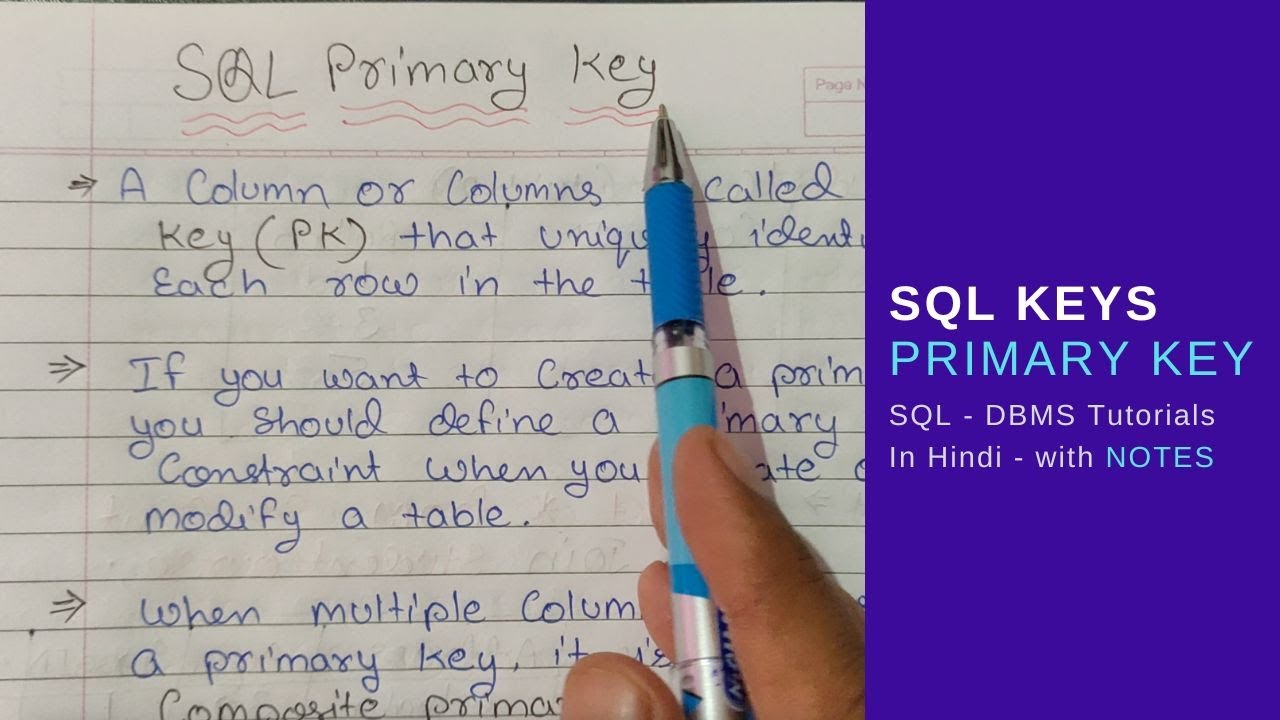 SQL Primary Key
Page N
⇒ A Column or Columns called
Key (PK) that identi
Each row in the
⇒ If you want to Creat a prim
you should define a mary
Constraint when you
modify a table.
⇒ When multiple Colum
a primary key, it is
Composite prima
SQL KEYS
PRIMARY KEY
SQL - DBMS Tutorials
In Hindi - with NOTES